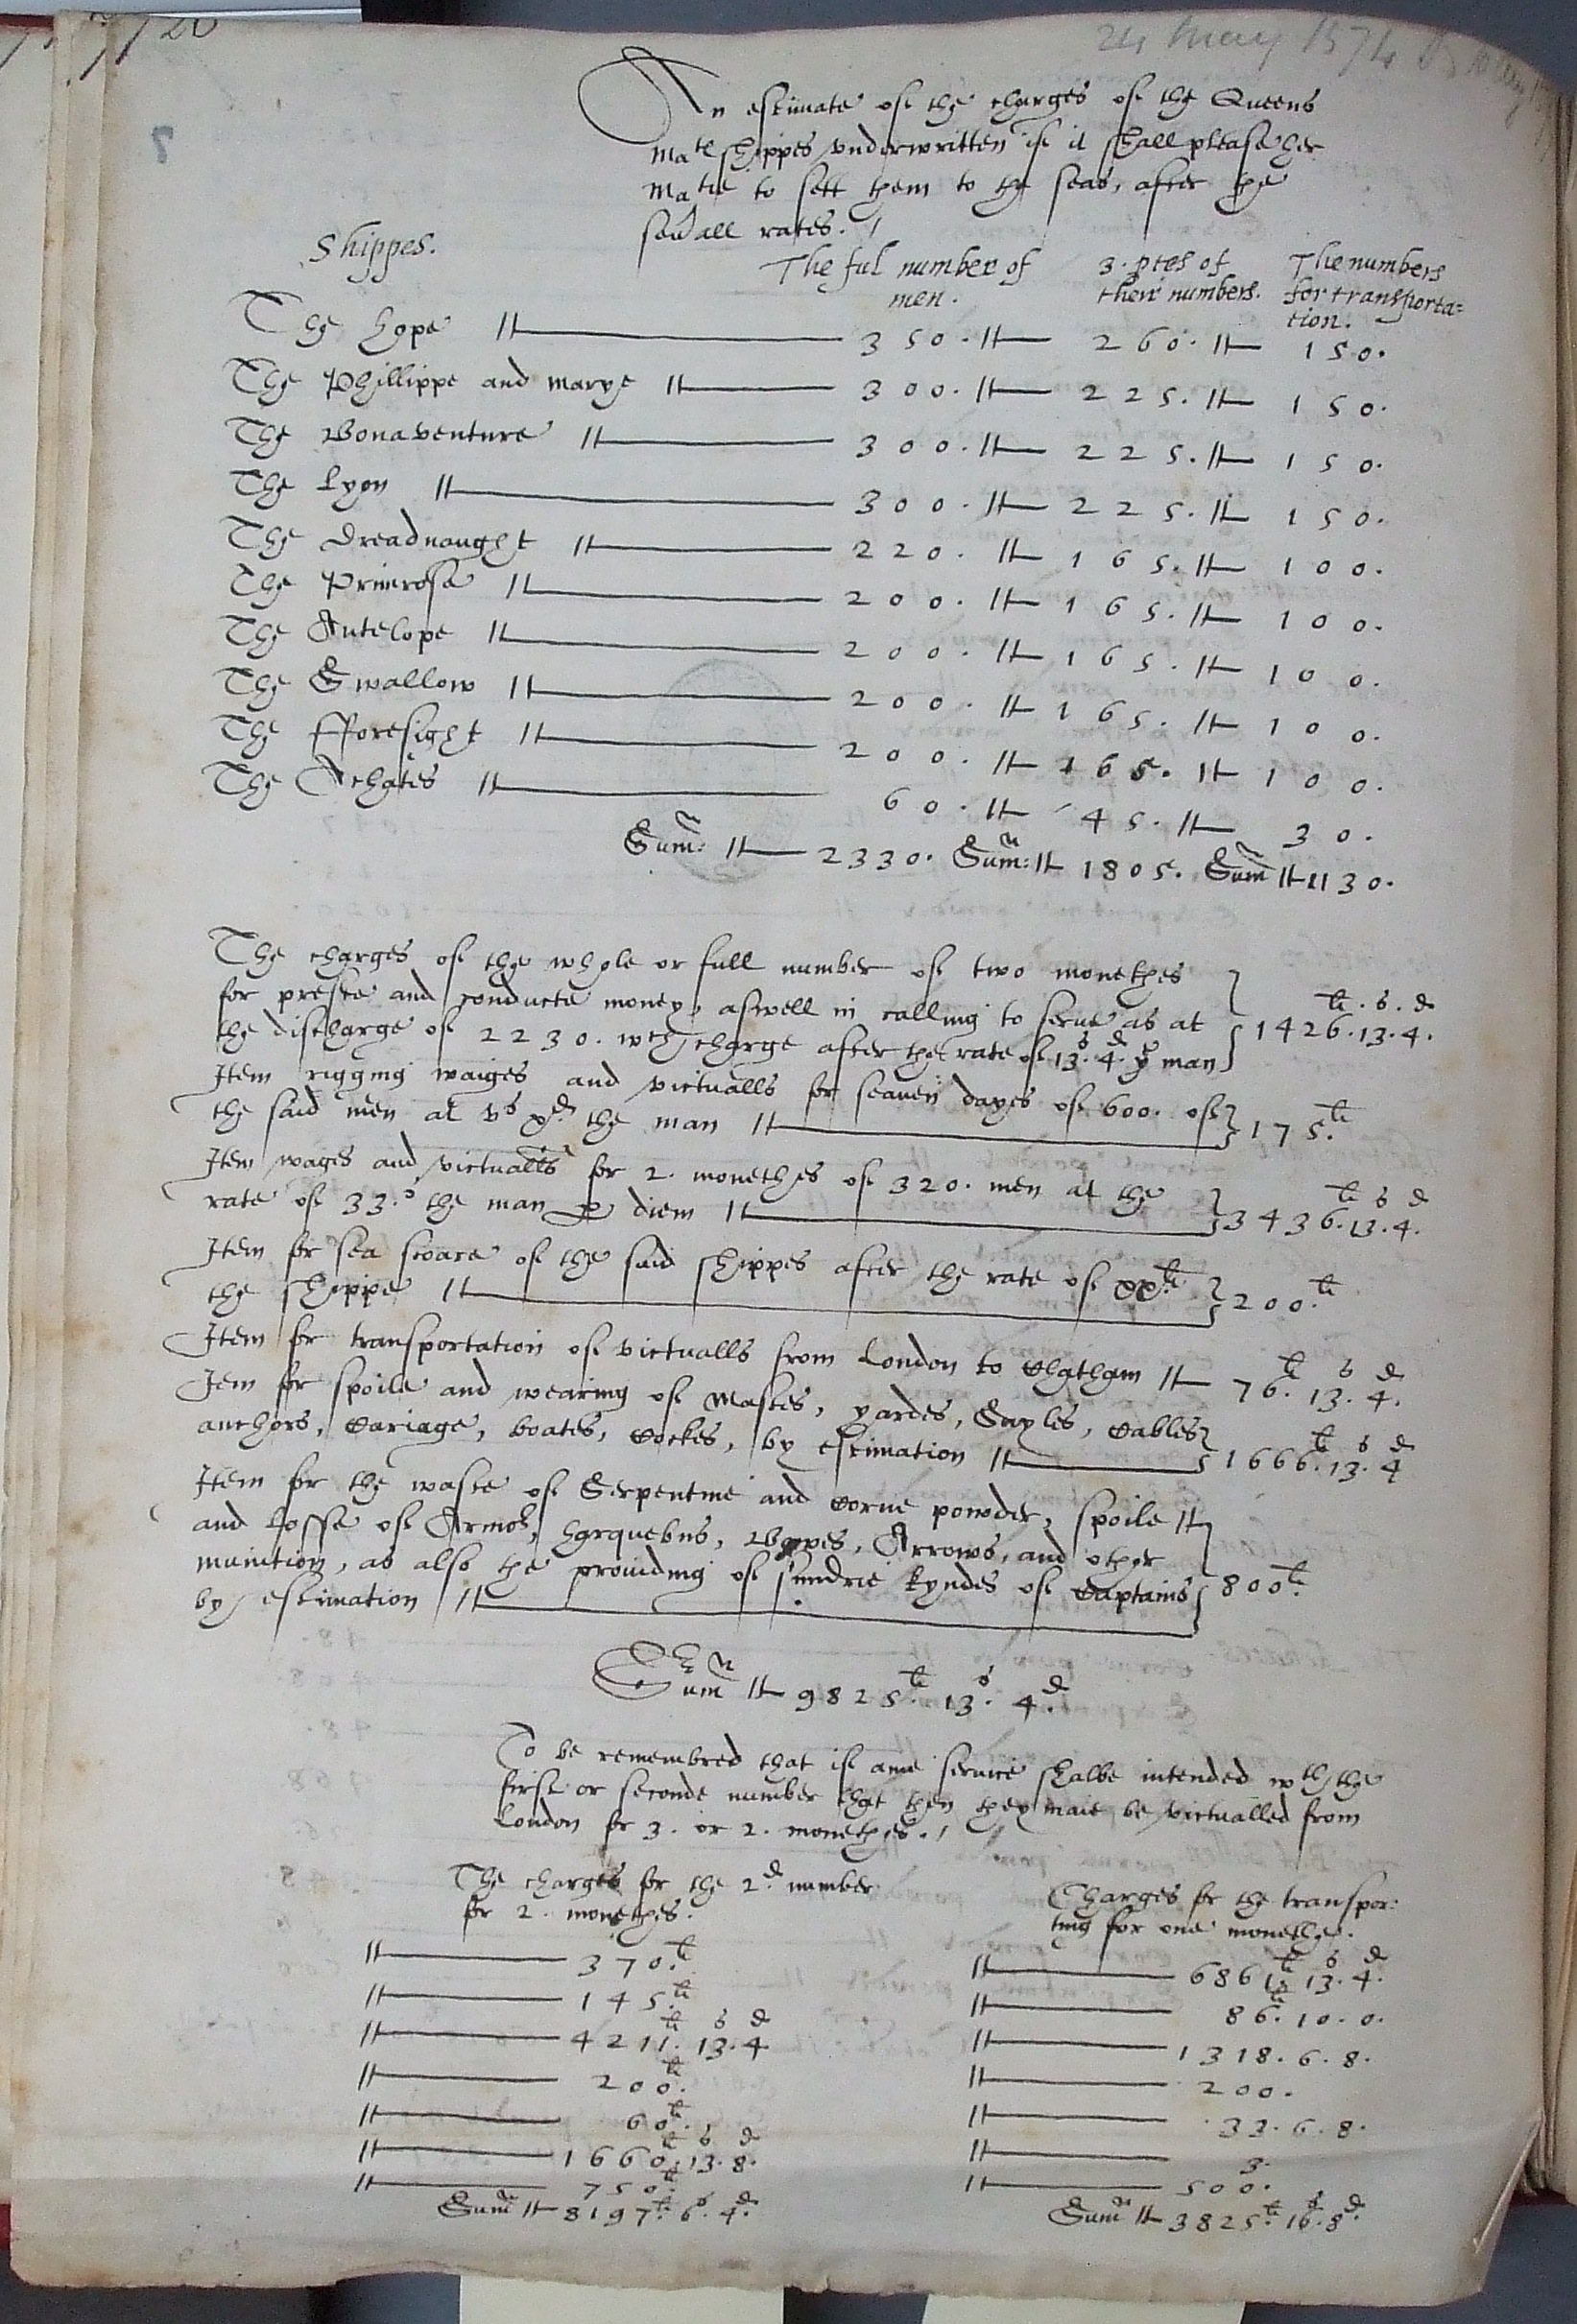 24 May 1574
An estimate of the charges of the Queens
Ma^tes shippes underwritten if it shall please her
Ma^tie to sett them to the seas, after the
seũall rates. /
Shippes.
The ful number of men.
3. ptes of their numbers.
The numbers for transporta=tion.
The Hope 350. 260. 150.
The Phillippe and Marye 300. 225. 150.
The Bonaventure 300. 225. 150.
The Lyon 300. 225. 150.
The Dreadnaught 220. 165. 100.
The Primrose 200. 165. 100.
The Antelope 200. 165. 100.
The Swallow 200. 165. 100.
The Fforesight 200. 165. 100.
The Achates 60. 45. 30.
Sum̃: 2330. Sum̃: 1805. Sum̃ 1130.
The charges of the whole or full number of two monethes
for preste and conducte money, aswell in calling to serve as at
the discharge of 2230. w^ch charge after the rate of 13^s. 4^d. ꝑ man } 1426^li. 13^s. 4^d.
Item rigging waiges and victualls for seaven dayes of 600. of
the said men at v^s x^d. the man } 175^li.
Item wages and victualls for 2. monethes of 320. men at the
rate of 33.^s the man ꝑ diem } 3436^li. 13^s. 4^d.
Item for sea stoare of the said shippes after the rate of xx^li.
the shippe } 200^li.
Item for transportation of victualls from London to Chatham 76^li. 13^s. 4^d.
Item for spoile and wearing of Mastes, yardes, Sayles, Cables
anchors, Cariage, boates, Cockes, by estimation } 1666^li. 13^s. 4^d
Item for the waste of Serpentine and Corne powder, spoile
and losse of Armo^r, harquebus, Bowes, Arrows, and other
munition, as also the providing of sundrie kyndes of Captains
by estimation } 800^li.
Sum̃ 9825^li. 13^s. 4^d.
To be remembred that if anie service shalbe intended w^th the
first or seconde number that then they maie be victualled from
London for 3. or 2. monethes. /
The charges for the 2^d. number
for 2. monethes.
370^li.
145^li.
4211^li. 13^s. 4^d.
200^li.
60^li.
1660^li. 13^s. 8^d.
750^li.
Sum̃ 8197^li. 6^s. 4^d.
Charges for the transpor:
ting for one monethe.
6861^li. 13^s. 4^d.
86^li. 10. 0.
1318. 6. 8.
200.
33. 6. 8.
3.
500.
Sum̃ 3825^li. 16^s. 8^d.